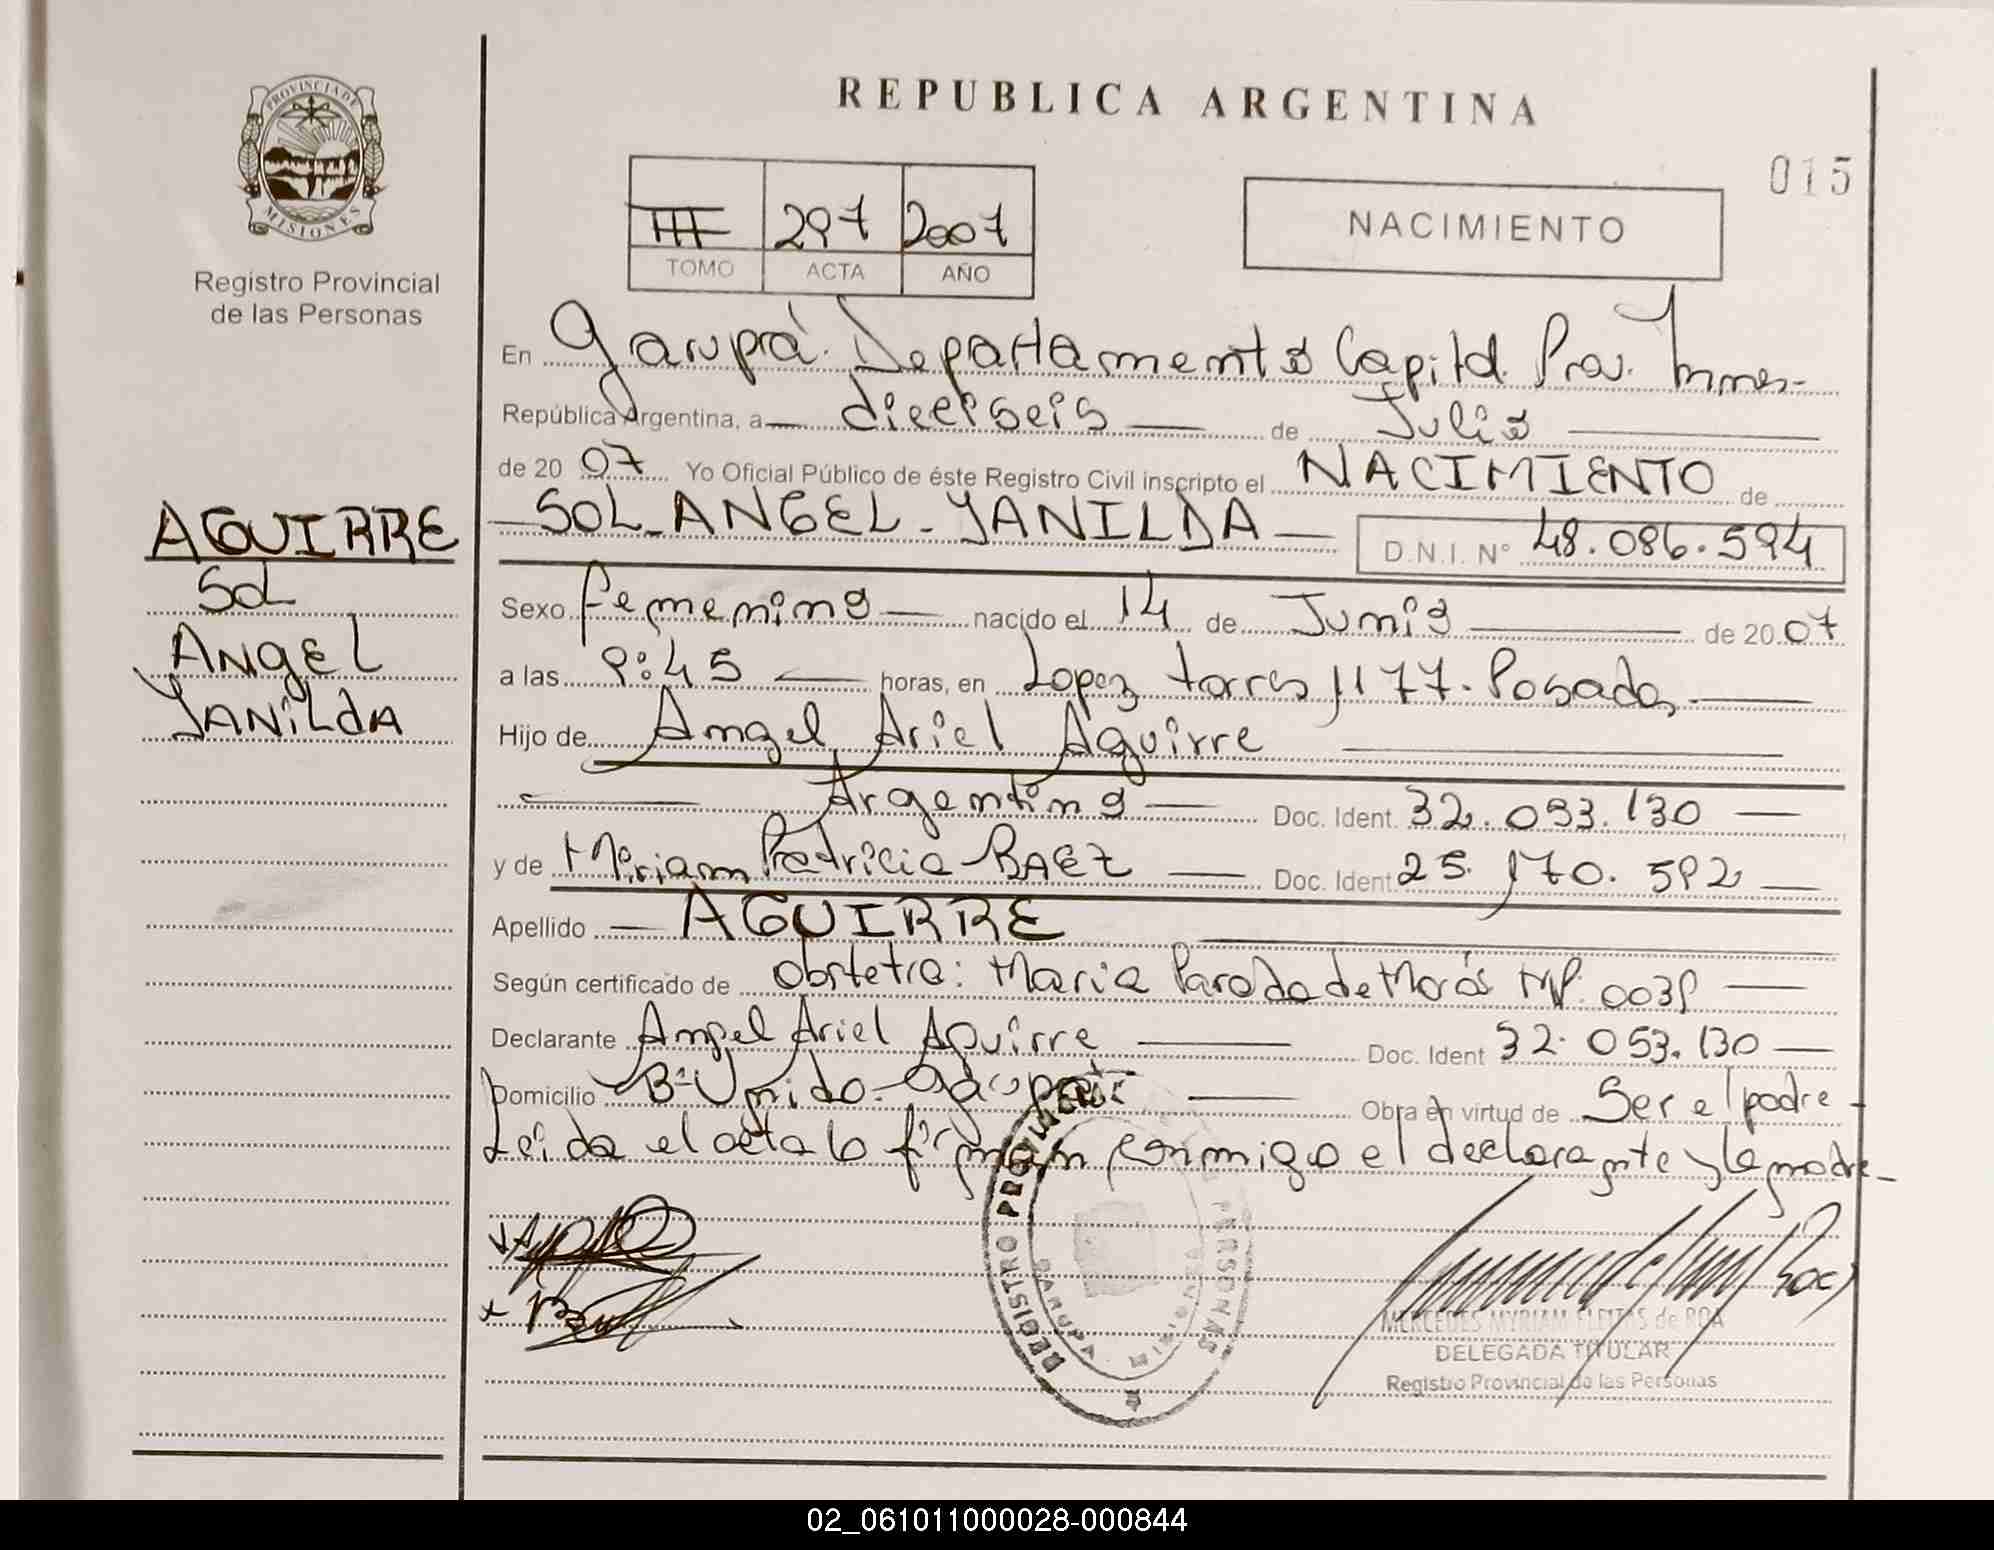 REPUBLICA ARGENTINA
015
PROVINCIA DE
MISIONES
Registro Provincial
de las Personas
III 297 2007
TOMO ACTA AÑO
NACIMIENTO
En Garupá. Departamento Capital. Prov. Mnes-
República Argentina, a dieciseis de Julio
de 2007 Yo Oficial Público de éste Registro Civil inscripto el NACIMIENTO de
SOL ANGEL YANILDA D.N.I. Nº 48.086.594
AGUIRRE
Sol
ANgEL
YANiLdA
Sexo femenino nacido el 14 de Junio de 2007
a las 9:45 horas, en Lopez torres 1177. Posadas
Hijo de Angel Ariel Aguirre
Argentino Doc. Ident. 32.053.130
y de Miriam Patricia BAEZ Doc. Ident. 25.170.592
Apellido AGUIRRE
Según certificado de obstetra: Maria Paroda de Morás MP. 0039
Declarante Angel Ariel Aguirre Doc. Ident 32.053.130
Domicilio Bº Unido. Garupá Obra en virtud de Ser el padre
Leida el acta lo firman conmigo el declarante y la madre
REGISTRO PROVINCIAL PERSONAS
GARUPA
MERCEDES MYRIAM FLEITAS de ROA
DELEGADA TITULAR
Registro Provincial de las Personas
02_061011000028-000844